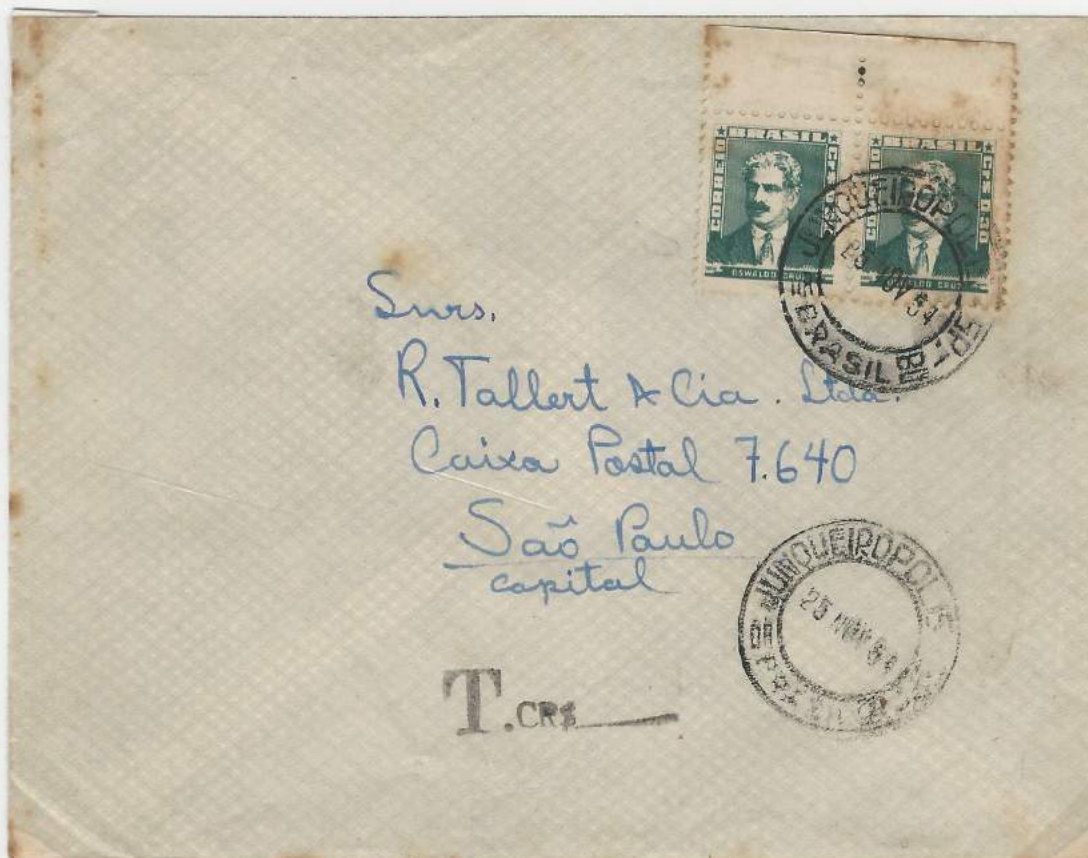 BRASIL BRASIL
CORREIO CORREIO
OSWALDO CRUZ OSWALDO CRUZ
JUNQUEIROPOLIS
25 NOV 54
BRASIL
Snrs.
R. Tallert & Cia. Ltda.
Caixa Postal 7.640
São Paulo
capital
JUNQUEIROPOLIS
25 NOV 54
T. CR$